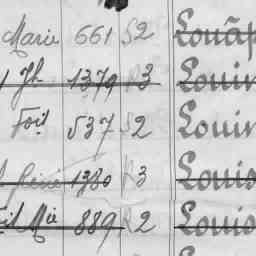 Marie 661 S2 Louâp
Jh 1379 R3 Louin
Foït 537 S2 Louin
René 1380 R3 Louis
Mie 889 R2 Louis